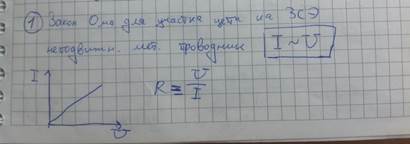 ① Закон Ома для участка цепи из ЗСЭ
неподвижн. мет. проводник I ~ U
I
R = U/I
U